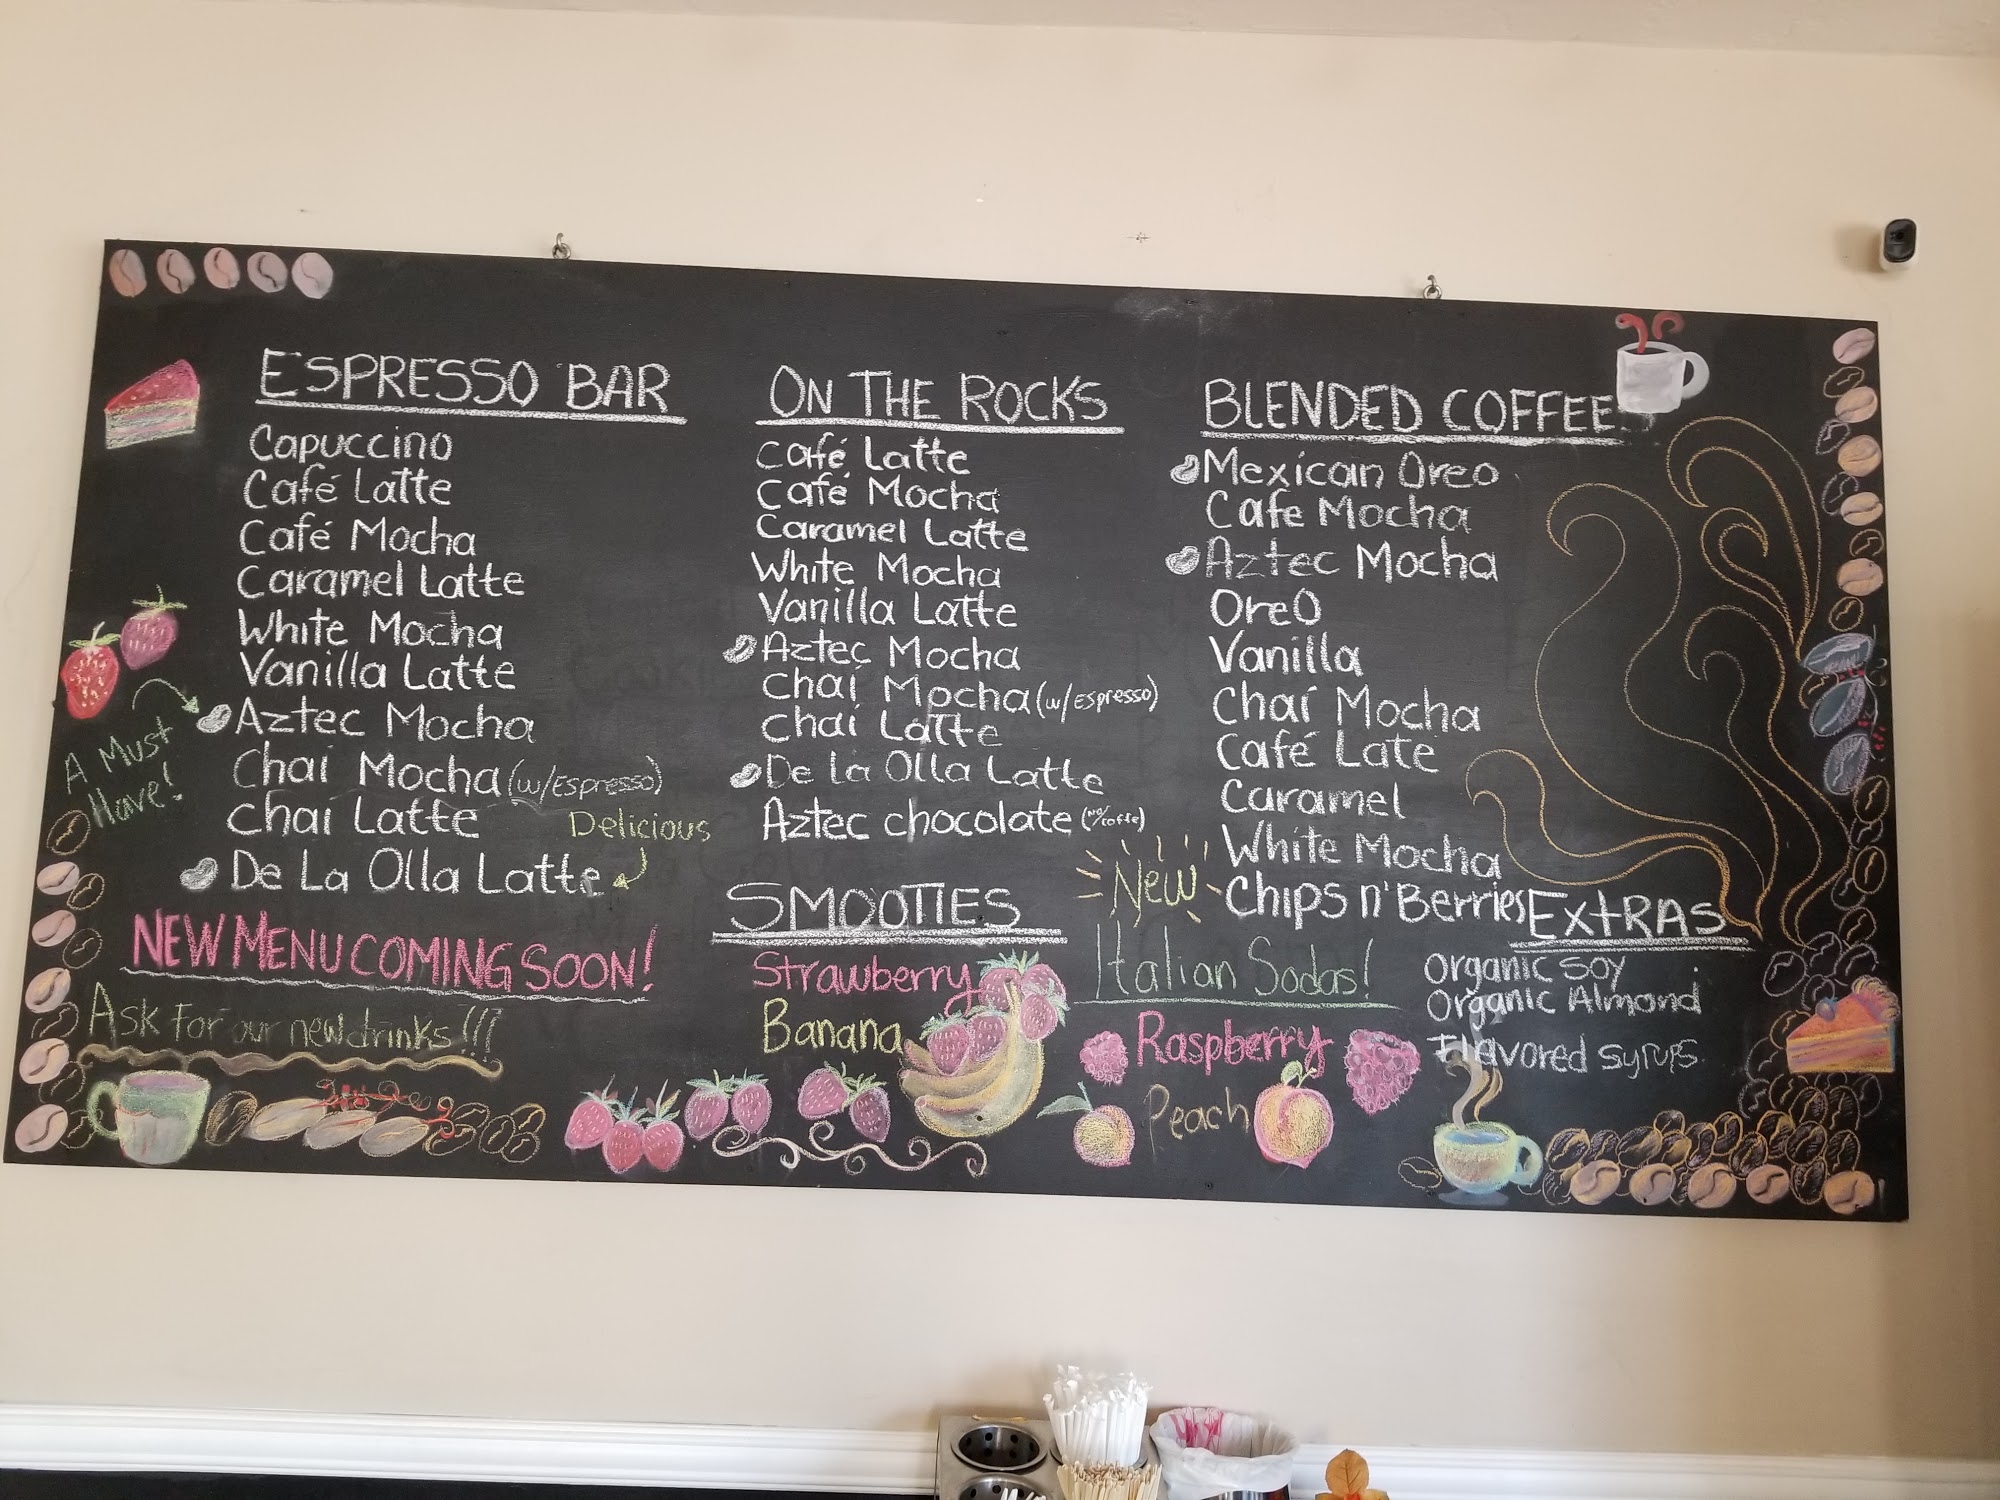 ESPRESSO BAR
Capuccino
Café Latte
Café Mocha
Caramel Latte
White Mocha
Vanilla Latte
Aztec Mocha
A Must
Have!
Chai Mocha (w/Espresso)
Chai Latte
Delicious
De La Olla Latte
NEW MENU COMING SOON!
Ask For our new drinks!!!
ON THE ROCKS
Café Latte
Café Mocha
Caramel Latte
White Mocha
Vanilla Latte
Aztec Mocha
Chai Mocha (w/Espresso)
Chai Latte
De La Olla Latte
Aztec chocolate
SMOOTIES
Strawberry
Banana
BLENDED COFFEE
Mexican Oreo
Cafe Mocha
Aztec Mocha
OreO
Vanilla
Chai Mocha
Café Late
Caramel
White Mocha
Chips n' Berries
New
Italian Sodas!
Raspberry
Peach
EXTRAS
Organic Soy
Organic Almond
Flavored Syrups